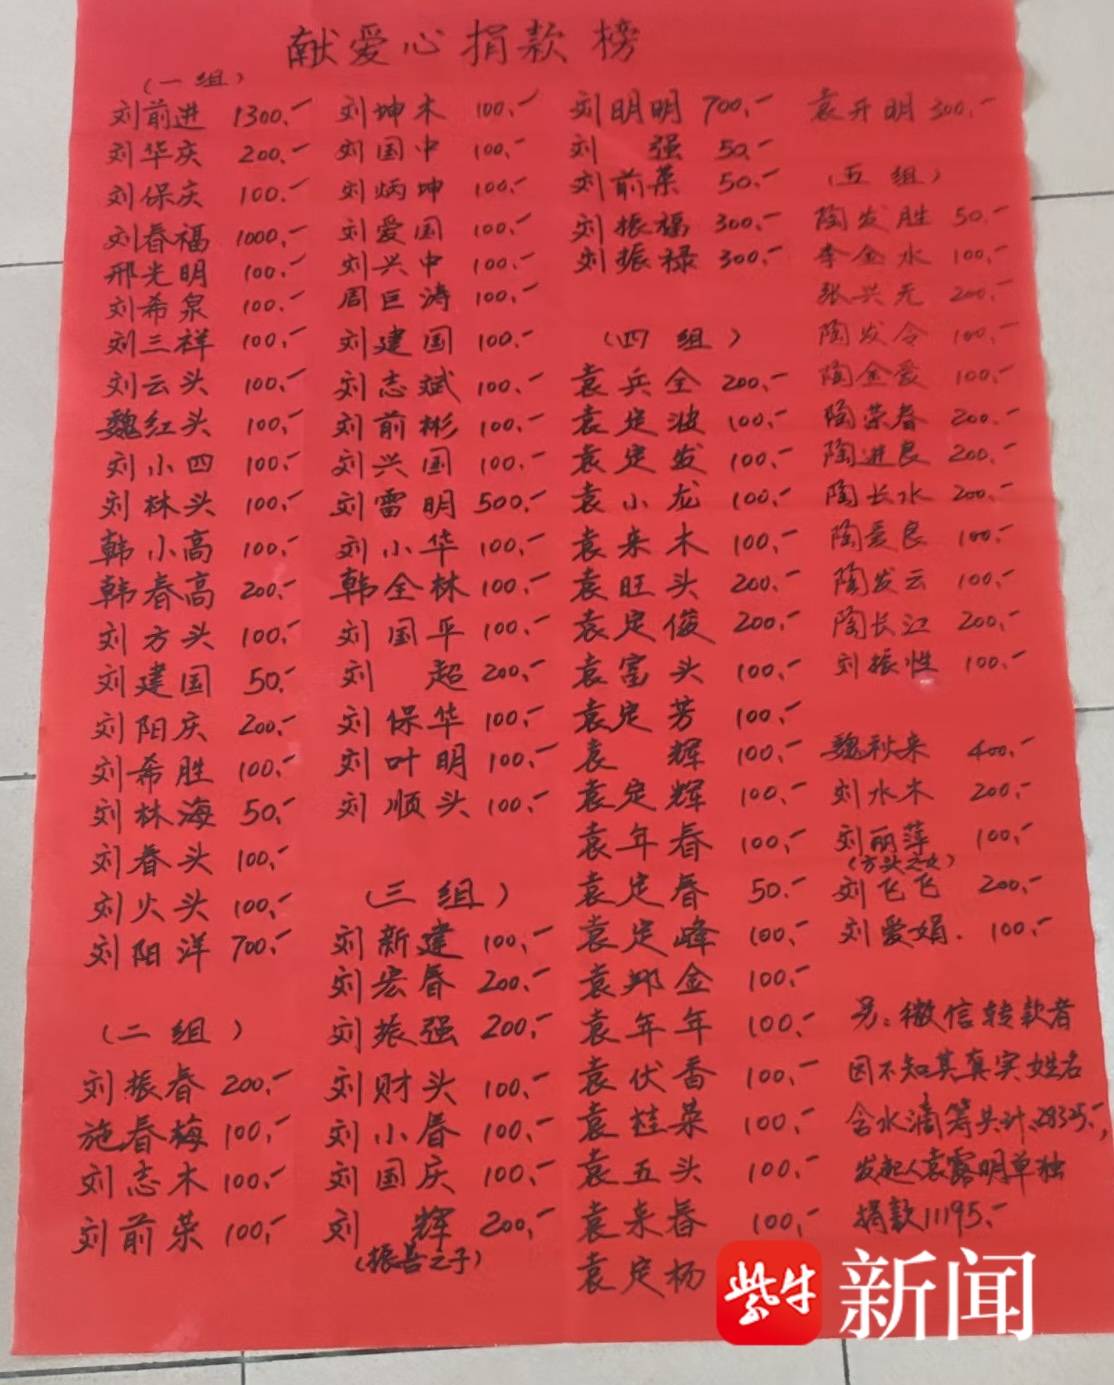 献爱心捐款榜
(一组)
刘前进 1300.-
刘华庆 200.-
刘保庆 100.-
刘春福 1000.-
邢光明 100.-
刘希泉 100.-
刘三祥 100.-
刘云头 100.-
魏红头 100.-
刘小四 100.-
刘林头 100.-
韩小高 100.-
韩春高 200.-
刘方头 100.-
刘建国 50.-
刘阳庆 200.-
刘希胜 100.-
刘林海 50.-
刘春头 100.-
刘火头 100.-
刘阳洋 700.-
(二组)
刘振春 200.-
施春梅 100.-
刘志木 100.-
刘前荣 100.-
刘坤木 100.-
刘国中 100.-
刘炳坤 100.-
刘爱国 100.-
刘兴中 100.-
周巨涛 100.-
刘建国 100.-
刘志斌 100.-
刘前彬 100.-
刘兴国 100.-
刘雷明 500.-
刘小华 100.-
韩全林 100.-
刘国平 100.-
刘 超 200.-
刘保华 100.-
刘叶明 100.-
刘顺头 100.-
(三组)
刘新建 100.-
刘宏春 200.-
刘振强 200.-
刘财头 100.-
刘小春 100.-
刘国庆 100.-
刘 辉 200.-
(振善之子)
刘明明 700.-
刘 强 50.-
刘前荣 50.-
刘振福 300.-
刘振禄 300.-
(四组)
袁兵全 200.-
袁定波 100.-
袁定发 100.-
袁小龙 100.-
袁来木 100.-
袁旺头 200.-
袁定俊 200.-
袁宝头 100.-
袁定芳 100.-
袁 辉 100.-
袁定辉 100.-
袁年春 100.-
袁定春 50.-
袁定峰 100.-
袁邦金 100.-
袁年年 100.-
袁伏香 100.-
袁桂荣 100.-
袁五头 100.-
袁来春 100.-
袁定杨
袁开明 300.-
(五组)
陶发胜 50.-
李金水 100.-
张兴元 200.-
陶发令 100.-
陶金爱 100.-
陶荣春 200.-
陶进良 200.-
陶长水 200.-
陶爱良 100.-
陶发云 100.-
陶长江 200.-
刘振性 100.-
魏秋来 400.-
刘水木 200.-
刘丽萍 100.-
(方头之女)
刘飞飞 200.-
刘爱娟. 100.-
另:微信转款者
因不知其真实姓名
含水滴筹共计:29325.-,
发起人袁露明单独
捐款11195.-
紫牛 新闻